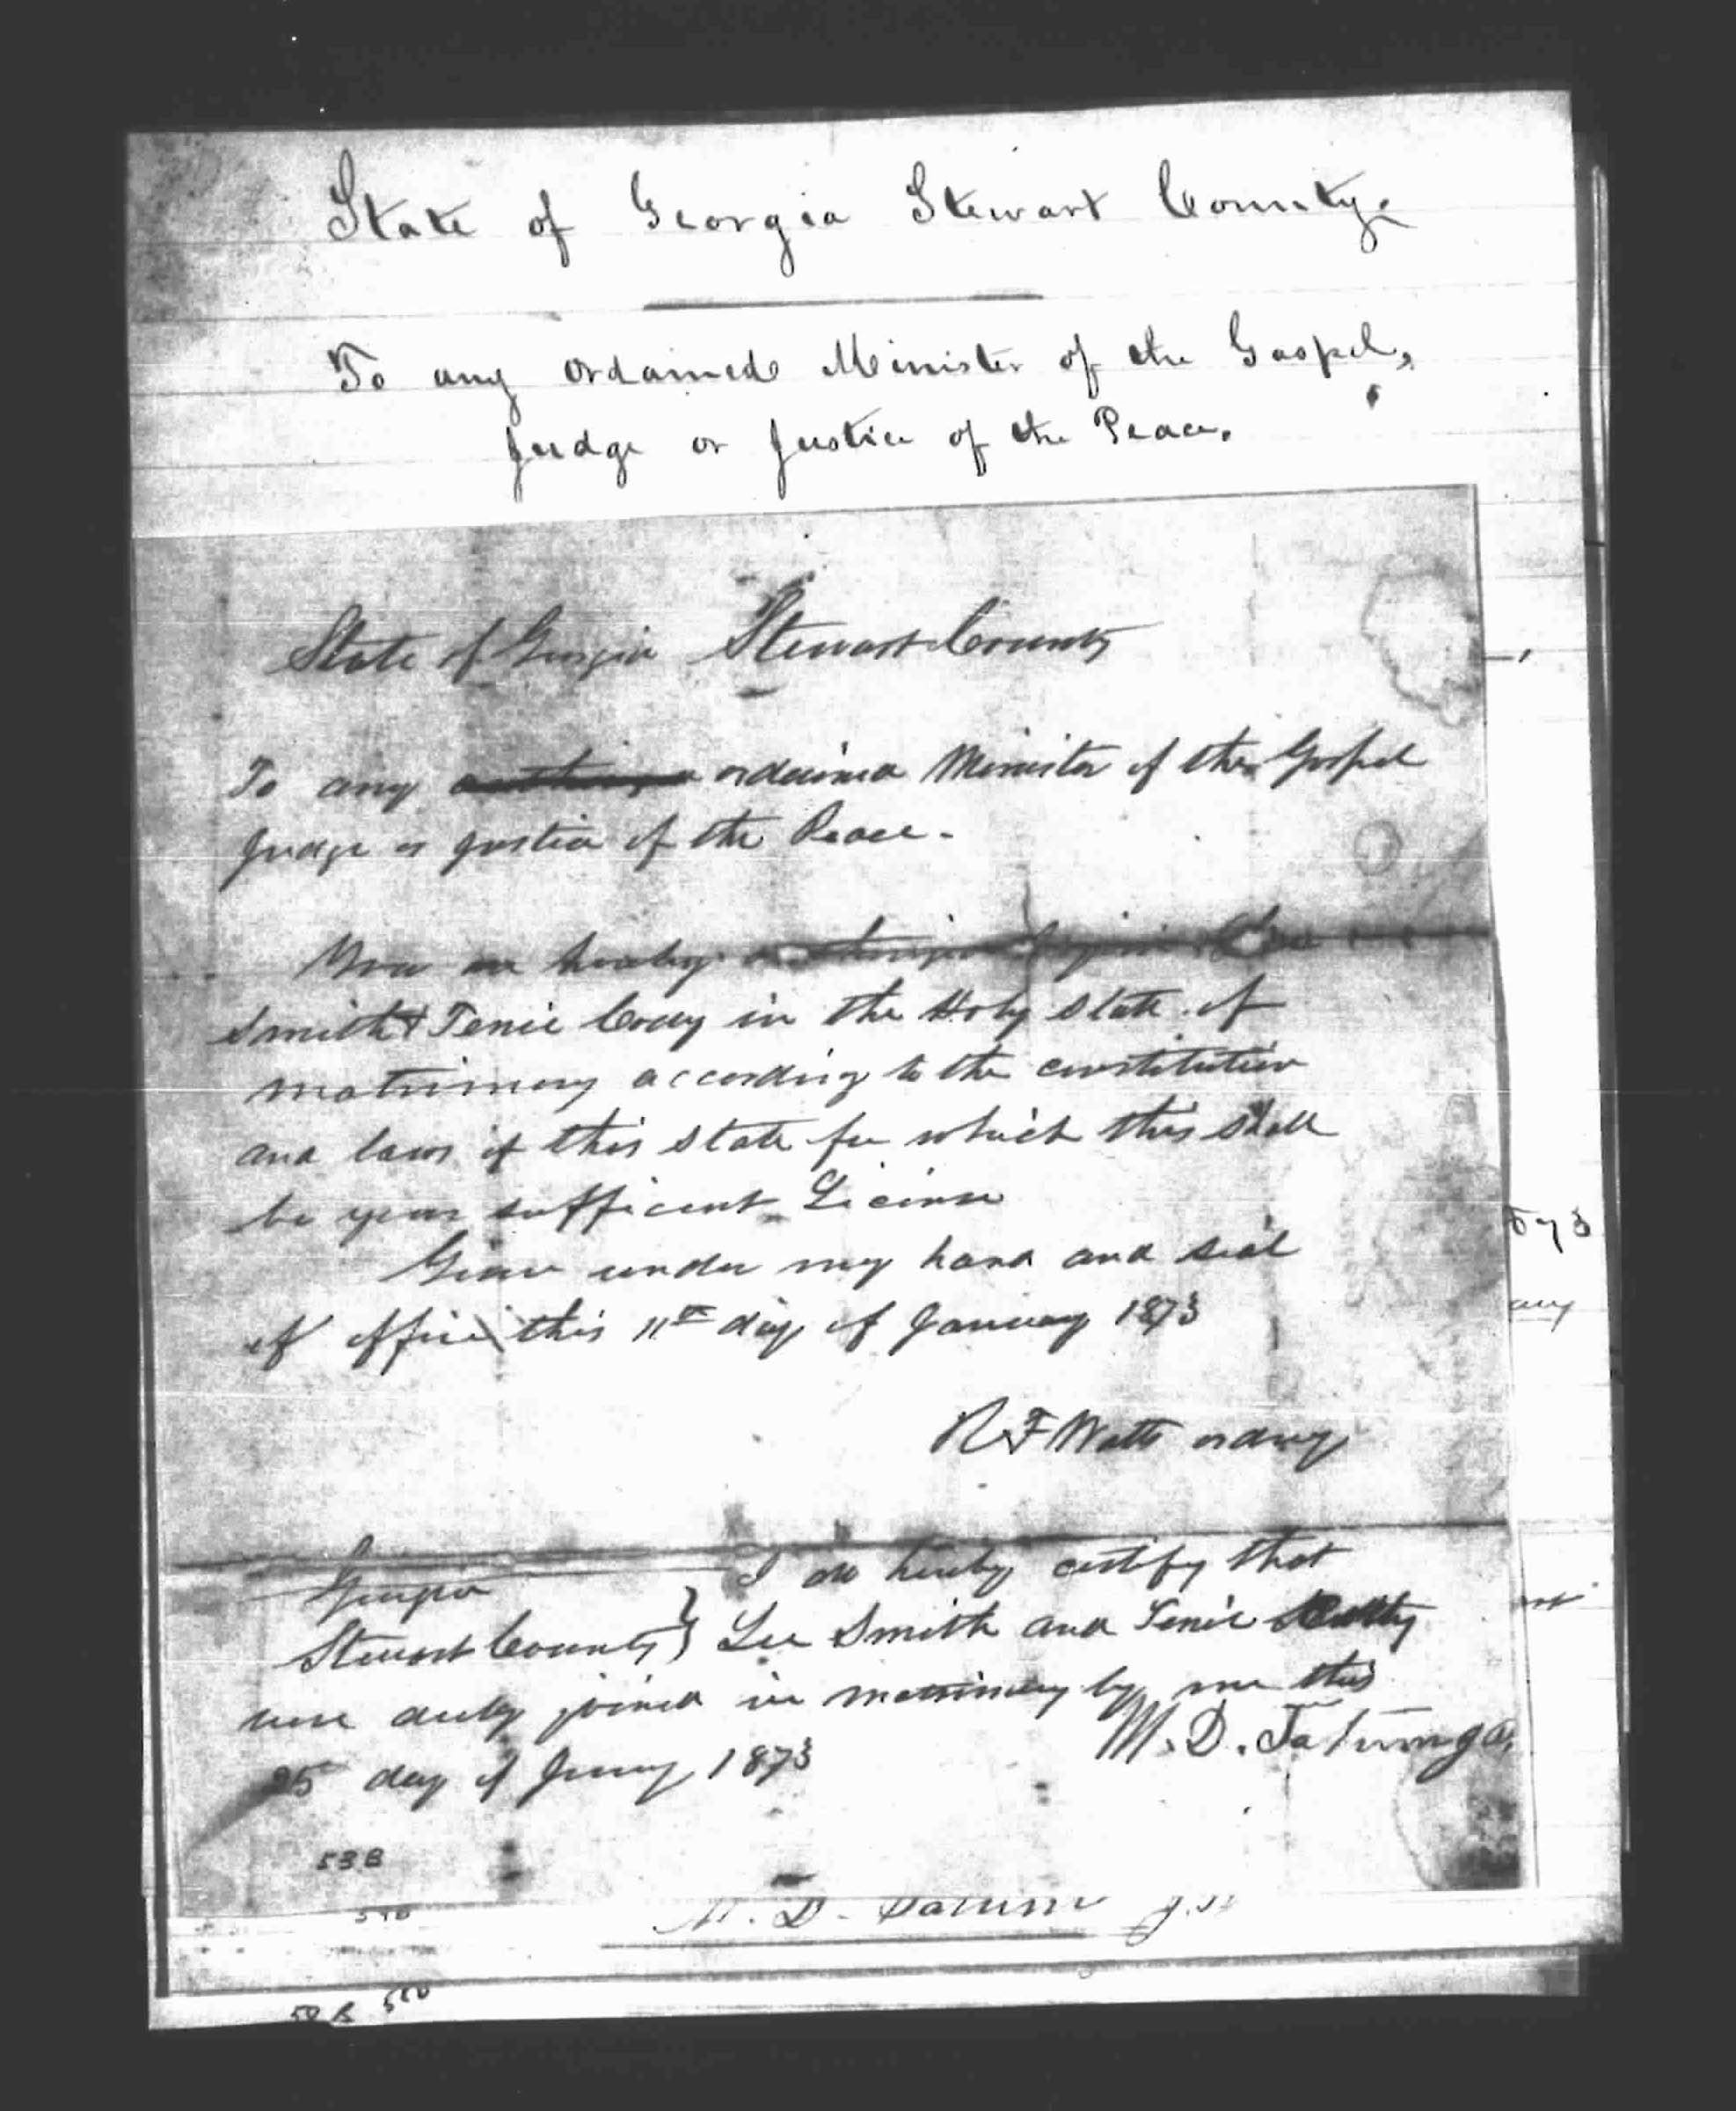 State of Georgia Stewart County.
To any ordained Minister of the Gospel,
Judge or Justice of the Peace.
State of Georgia Stewart County
To any ordained Minister of the Gospel
Judge or Justice of the Peace.
You are hereby
Smith & Tenie Cody in the Holy state of
matrimony according to the constitution
and laws of this state for which this shall
be your sufficient License
Given under my hand and seal
of office this 11th day of January 1873
R F Watts ordny
Georgia
I do hereby certify that
Stewart County } Lee Smith and Tenie
were duly joined in matrimony by me this
25 day of Jany 1873
M. D. Tatum
53B
M. D.